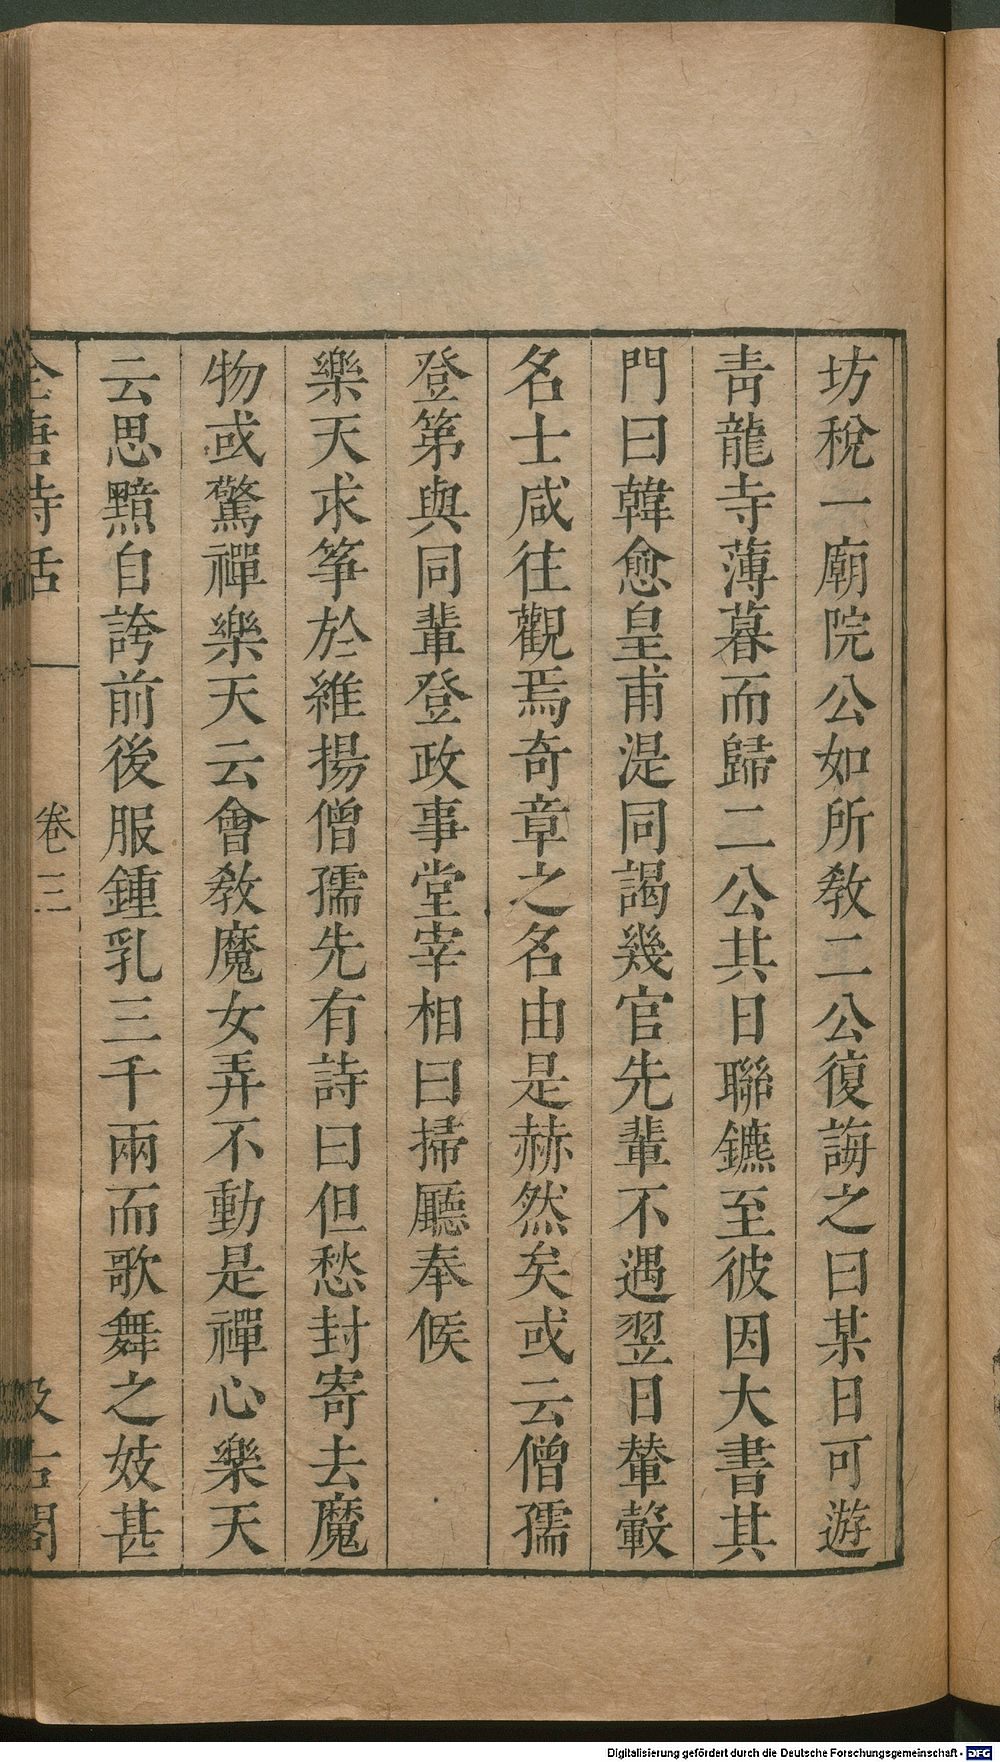 坊稅一廟院公如所敎二公復誨之曰某日可遊
靑龍寺薄暮而歸二公共日聯鑣至彼因大書其
門曰韓愈皇甫湜同謁幾官先輩不遇翌日輦轂
名士咸往觀焉奇章之名由是赫然矣或云僧孺
登第與同輩登政事堂宰相曰掃廳奉候
樂天求筝於維揚僧孺先有詩曰但愁封寄去魔
物或驚禪樂天云會敎魔女弄不動是禪心樂天
云思黯自誇前後服鍾乳三千兩而歌舞之妓甚
全唐詩話 卷三 汲古閣
Digitalisierung gefördert durch die Deutsche Forschungsgemeinschaft - DFG